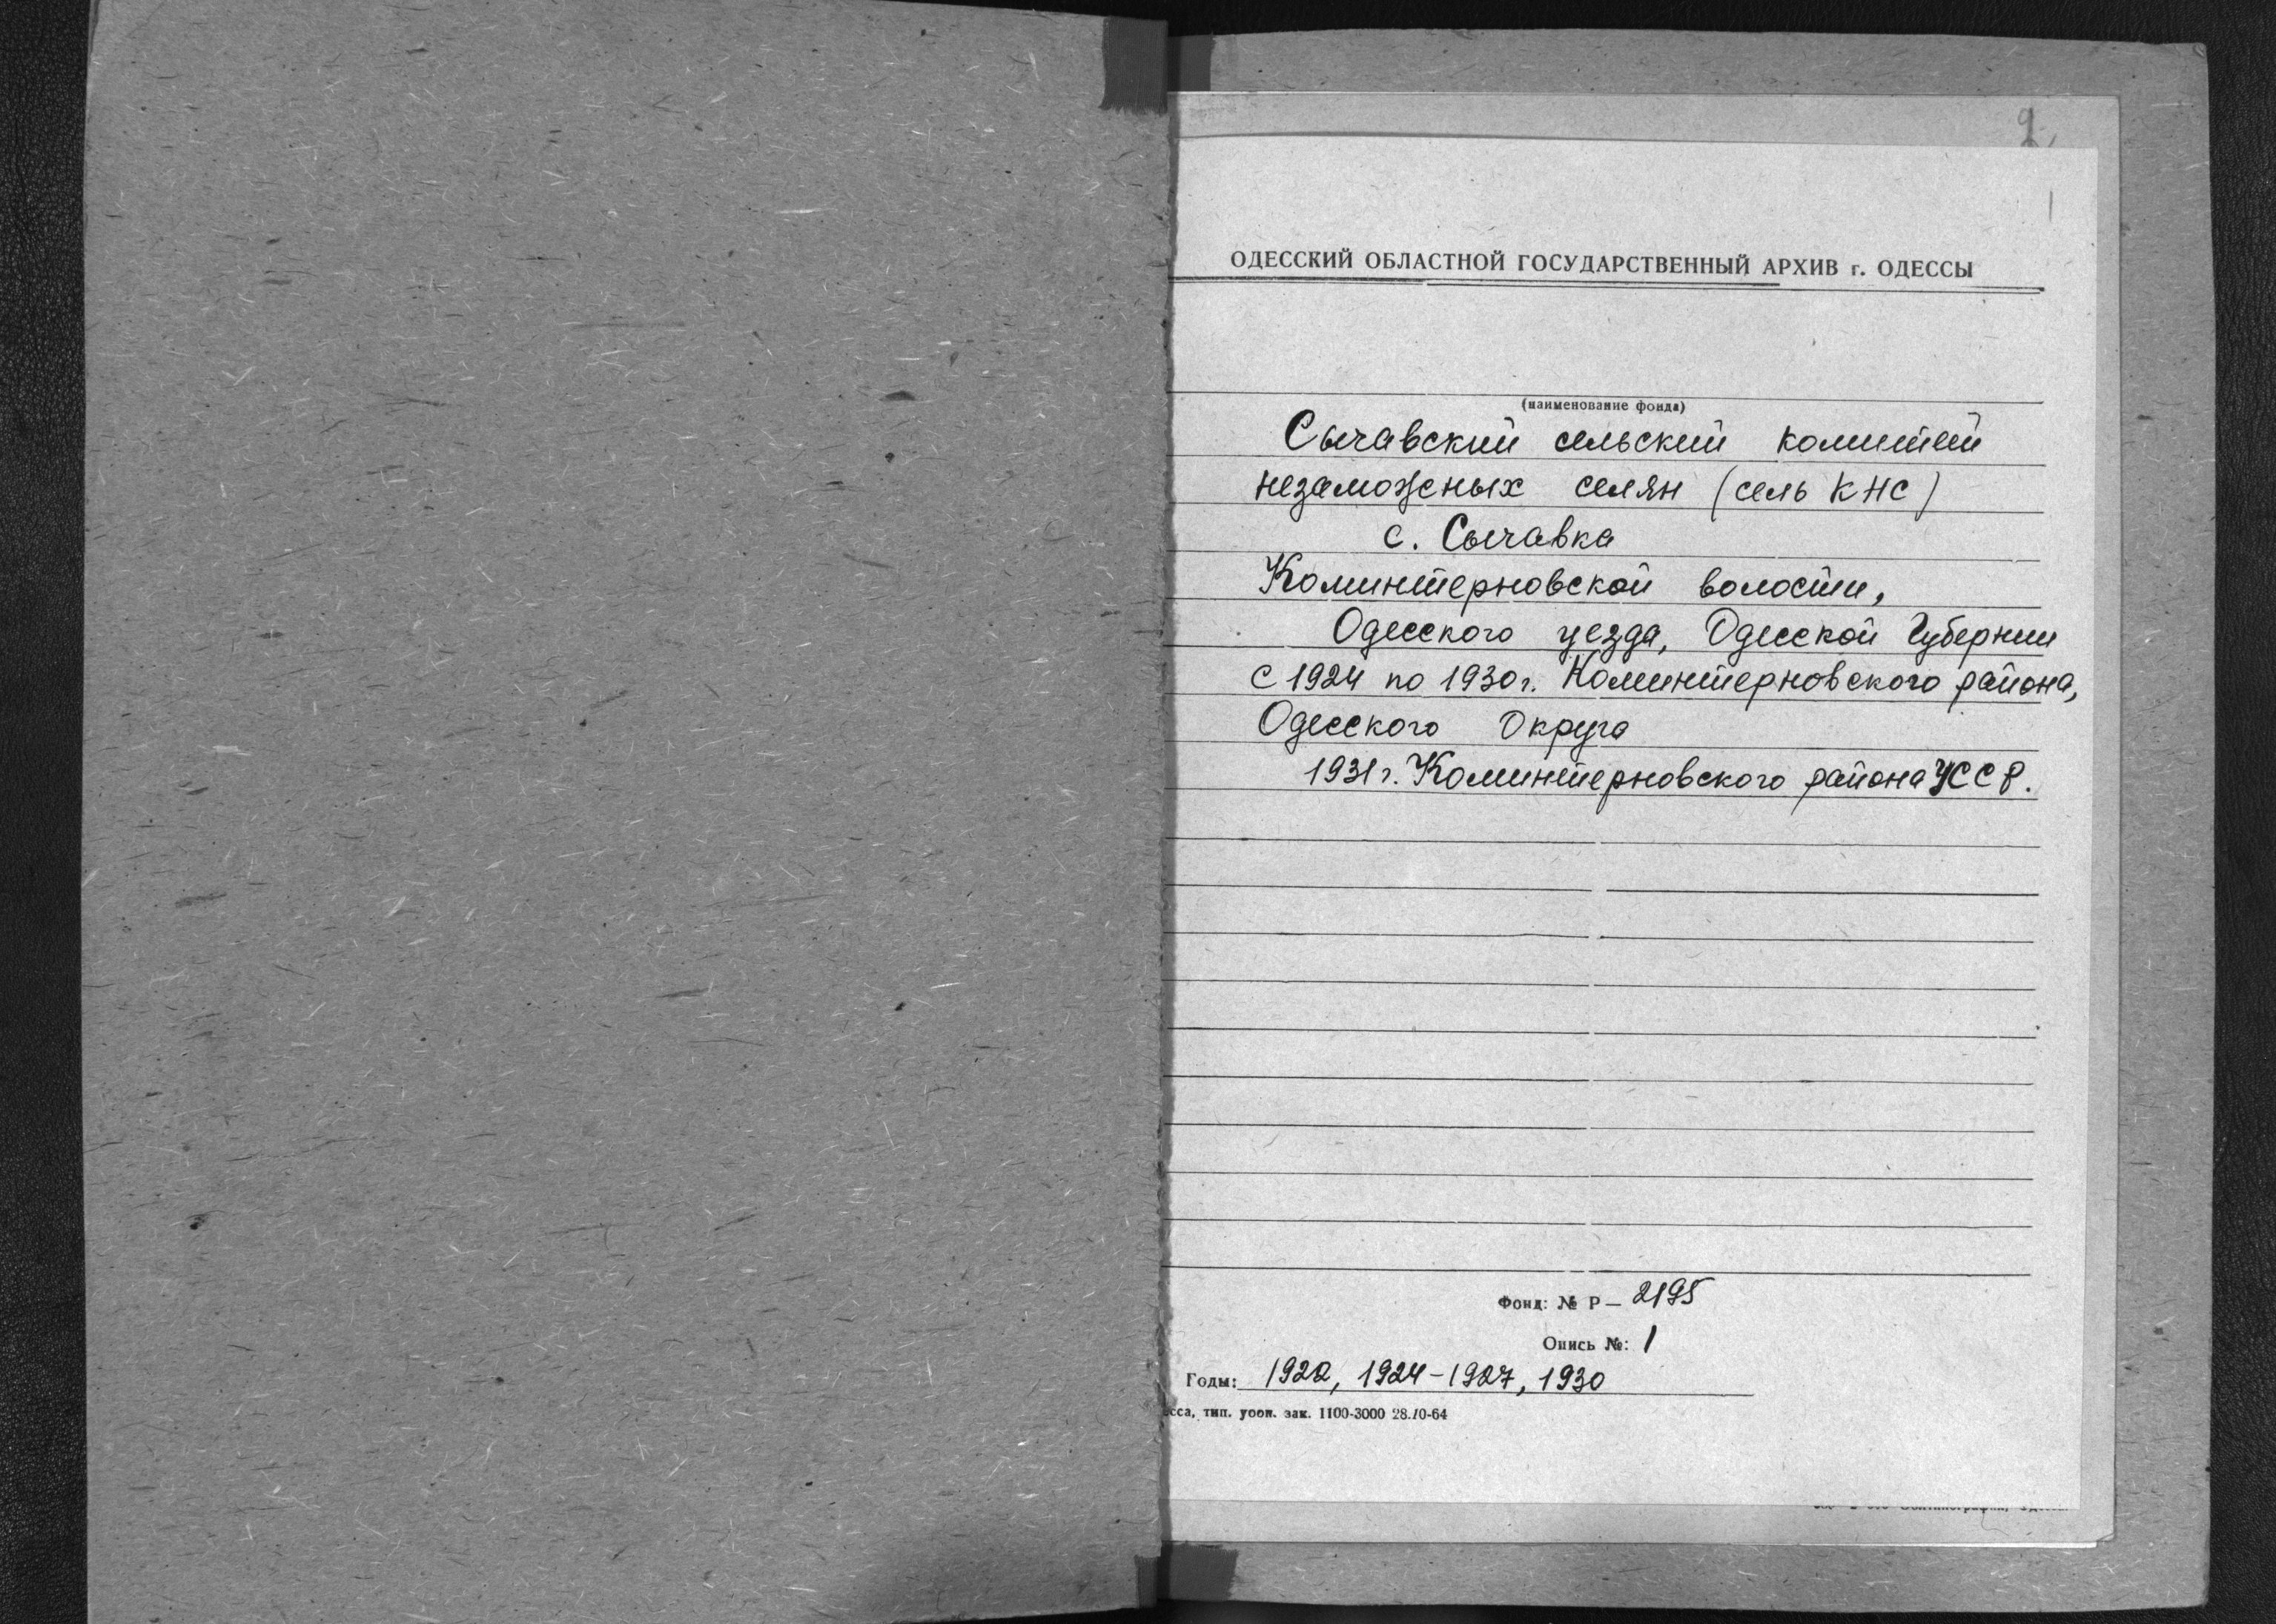 2
1
ОДЕССКИЙ ОБЛАСТНОЙ ГОСУДАРСТВЕННЫЙ АРХИВ г. ОДЕССЫ
(наименование фонда)
Сычавский сельский комитет
незаможных селян (сель КНС)
с. Сычавка
Коминтерновской волости,
Одесского уезда, Одесской Губернии
с 1924 по 1930г. Коминтерновского района,
Одесского Округа
1931г. Коминтерновского района УССР.
Фонд: № Р— 2195
Опись №: 1
Годы: 1922, 1924-1927, 1930
сса, тип. зак. 1100-3000 28.10-64